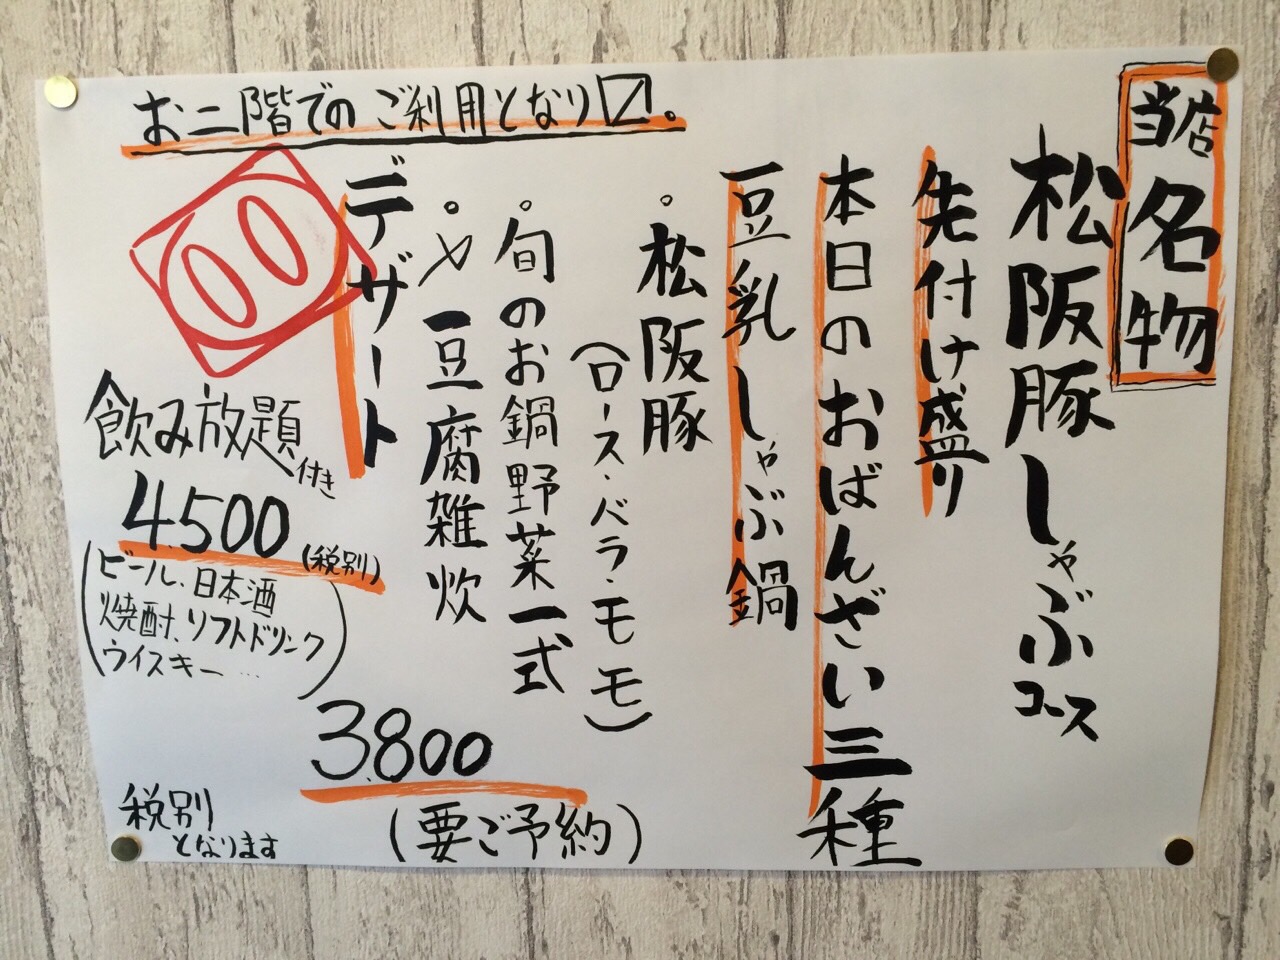 当店名物
松阪豚しゃぶコース
先付け盛り
本日のおばんざい三種
豆乳しゃぶ鍋
・松阪豚
(ロース・バラ・モモ)
・旬のお鍋野菜一式
・〆豆腐雑炊
デザート
お二階でのご利用となり〼。
飲み放題付き
4,500(税別)
(ビール、日本酒
焼酎、ソフトドリンク
ウイスキー…)
3,800
(要ご予約)
税別
となります